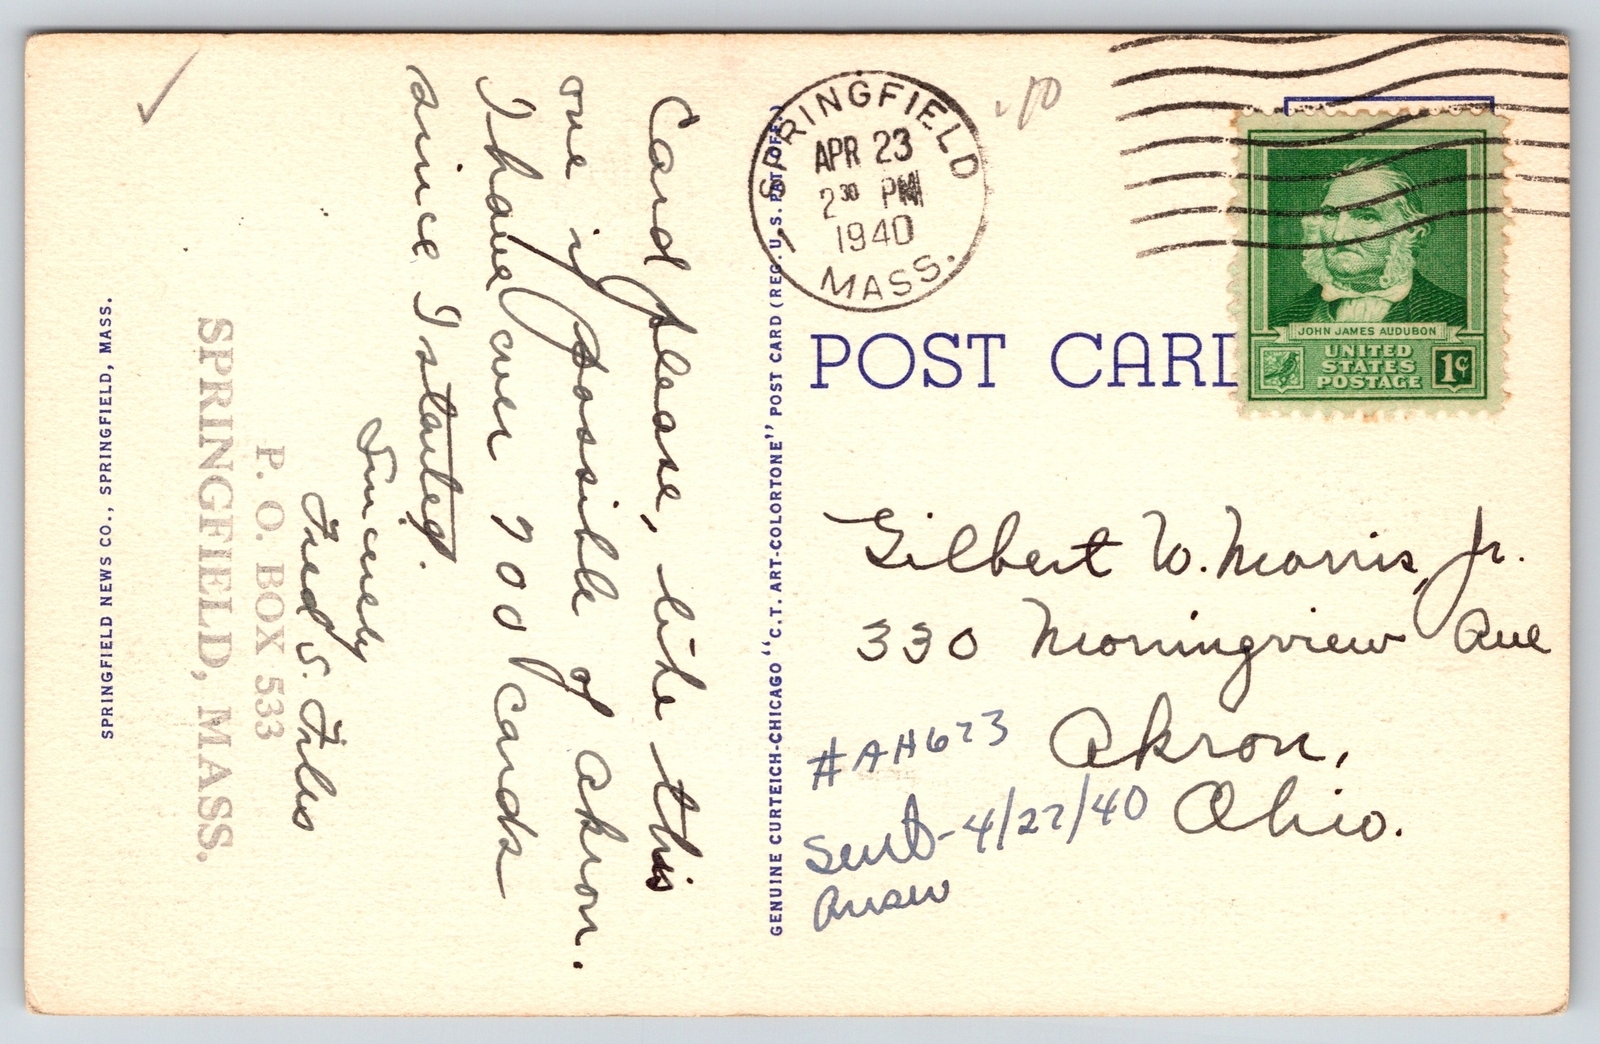 Card please, like this
one if possible of Akron.
I have over 700 cards
since I started.
Sincerely
Fred S. Files
P. O. BOX 533
SPRINGFIELD, MASS.
SPRINGFIELD NEWS CO., SPRINGFIELD, MASS.
GENUINE CURTEICH-CHICAGO "C.T. ART-COLORTONE" POST CARD (REG. U.S. PAT. OFF.)
SPRINGFIELD
APR 23
2 30 PM
1940
MASS.
JOHN JAMES AUDUBON
UNITED
STATES
POSTAGE
1¢
POST CARD
Gilbert W. Morris, Jr.
330 Morningview Ave
Akron,
Ohio.
#AH673
Sent-4/27/40
answ